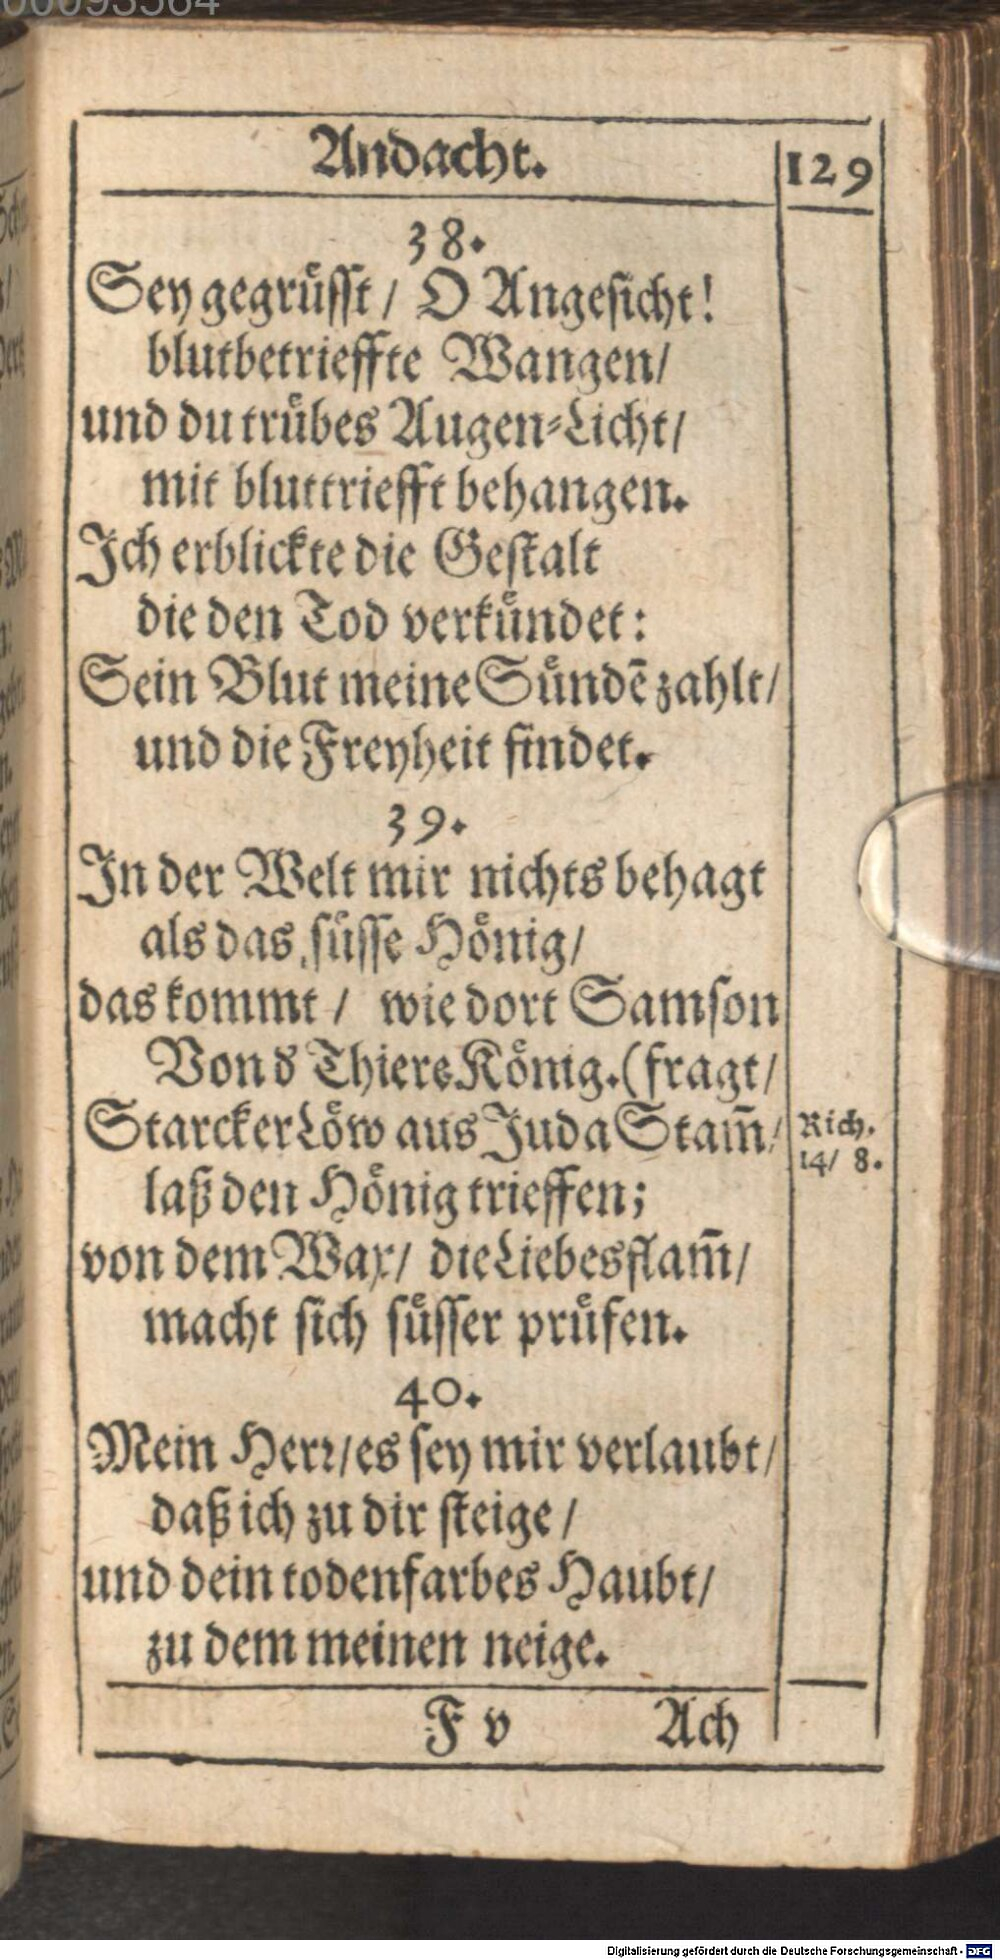 00093564
Andacht.
129
38.
Sey gegrüsst / O Angesicht!
blutbetrieffte Wangen/
und du trübes Augen-Licht/
mit bluttriefft behangen.
Ich erblickte die Gestalt
die den Tod verkündet:
Sein Blut meine Sündē zahlt/
und die Freyheit findet.
39.
In der Welt mir nichts behagt
als das süsse Hönig/
das kommt / wie dort Samson
Von d Thiere König. (fragt/
Starcker Löw aus Juda Stam̄/
Rich.
14/ 8.
laß den Hönig trieffen;
von dem Wax/ die Liebesflam̄/
macht sich süsser prüfen.
40.
Mein Herr/es sey mir verlaubt/
daß ich zu dir steige /
und dein todenfarbes Haubt/
zu dem meinen neige.
F v
Ach
Digitalisierung gefördert durch die Deutsche Forschungsgemeinschaft - DFG